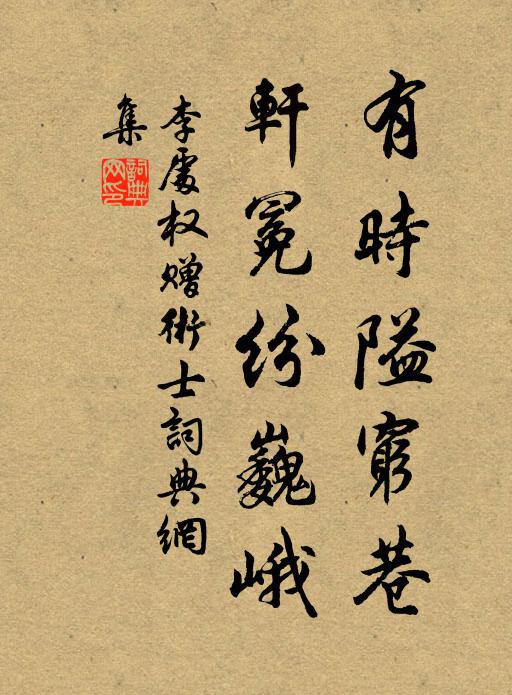 有時隘窮巷
軒冕紛巍峨
李處权贈術士詞典網
集
詞典網印